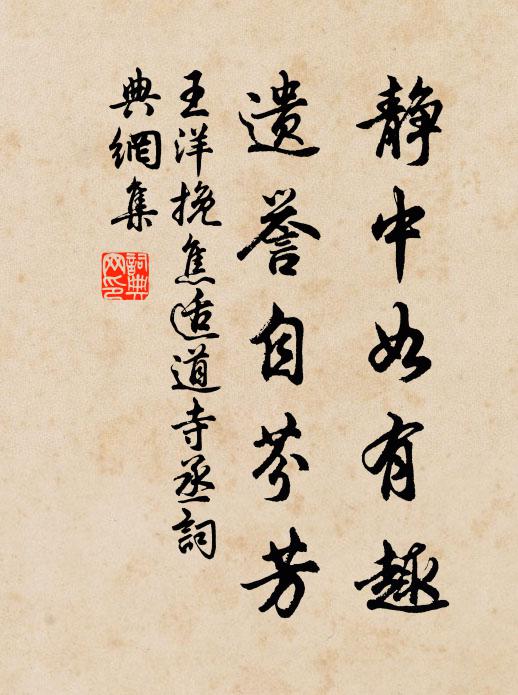 静中如有趣
遗誉自芬芳
王洋挽焦适道寺丞詞
典網集
詞典网印